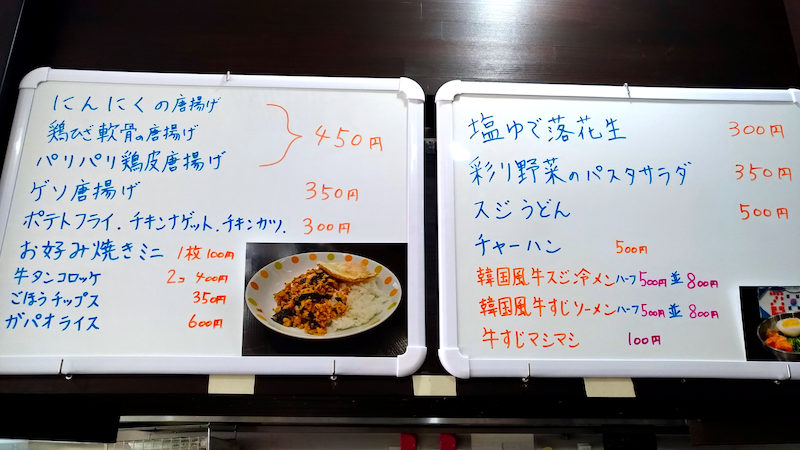 にんにくの唐揚げ
鶏ひざ軟骨の唐揚げ
パリパリ鶏皮唐揚げ
450円
ゲソ唐揚げ 350円
ポテトフライ.チキンナゲット.チキンカツ. 300円
お好み焼きミニ 1枚100円
牛タンコロッケ 2コ 400円
ごぼうチップス 350円
ガパオライス 600円
塩ゆで落花生 300円
彩り野菜のパスタサラダ 350円
スジうどん 500円
チャーハン 500円
韓国風牛スジ冷メンハーフ500円並800円
韓国風牛すじソーメンハーフ500円並800円
牛すじマシマシ 100円